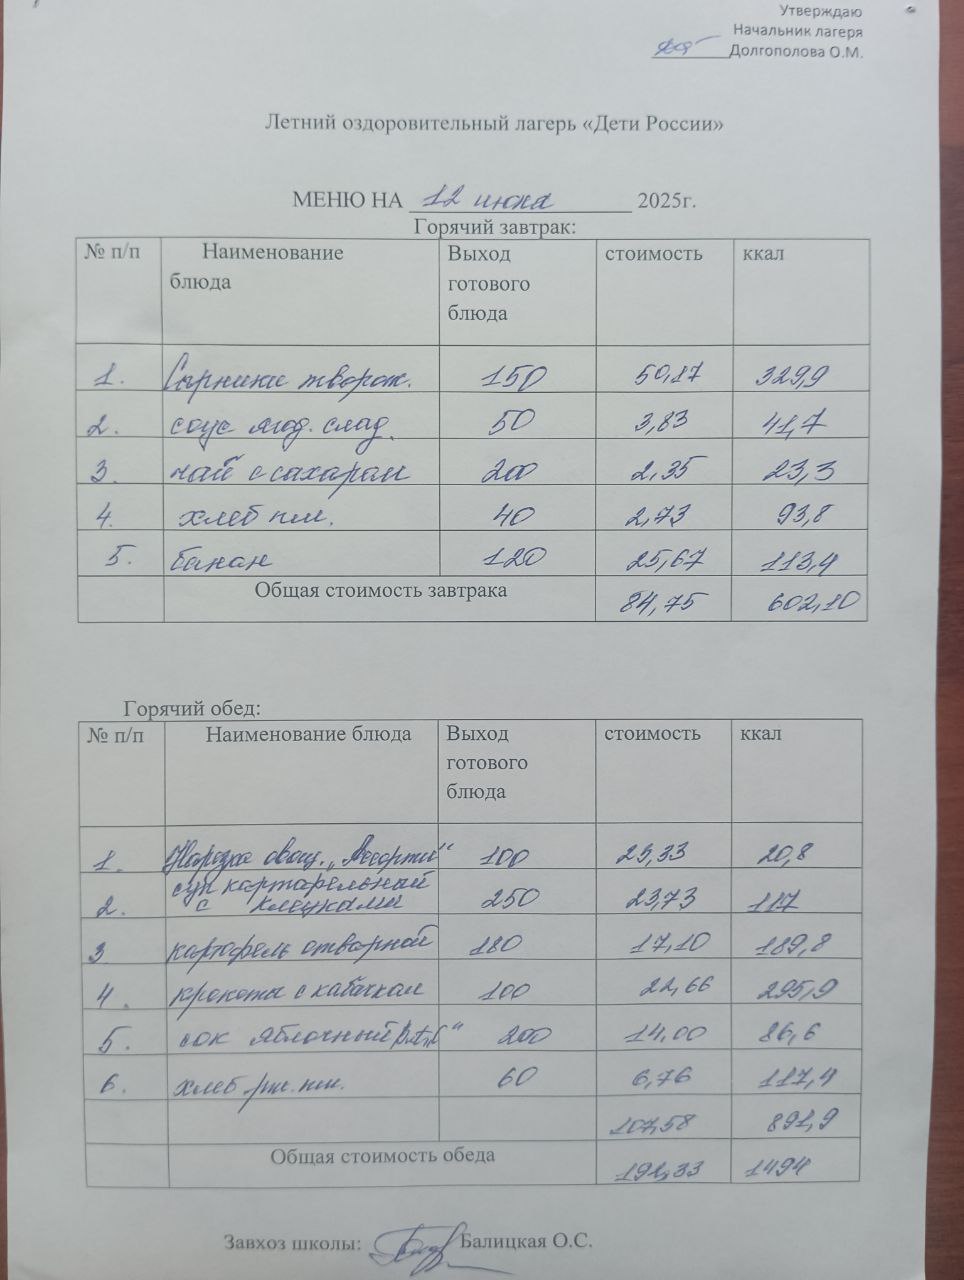 Утверждаю
Начальник лагеря
Долгополова О.М.
Летний оздоровительный лагерь «Дети России»
МЕНЮ НА 12 июня 2025г.
Горячий завтрак:
№ п/п Наименование блюда Выход готового блюда стоимость ккал
1. Сырники творож. 150 50,17 329,9
2. соус ягод. слад. 50 3,83 41,7
3. чай с сахаром 200 2,35 23,3
4. хлеб пш. 40 2,73 93,8
5. банан 120 25,67 113,4
Общая стоимость завтрака 84,75 602,10
Горячий обед:
№ п/п Наименование блюда Выход готового блюда стоимость ккал
1. Нарезка овощ. „Ассорти“ 100 23,33 20,8
2. суп картофельный с клецками 250 23,73 117
3 картофель отварной 180 17,10 189,8
4. крокеты с кабачком 100 22,66 295,9
5. сок яблочный 200 14,00 86,6
6. хлеб рж. пш. 60 6,76 117,4
107,58 891,9
Общая стоимость обеда 192,33 1494
Завхоз школы: Балицкая О.С.